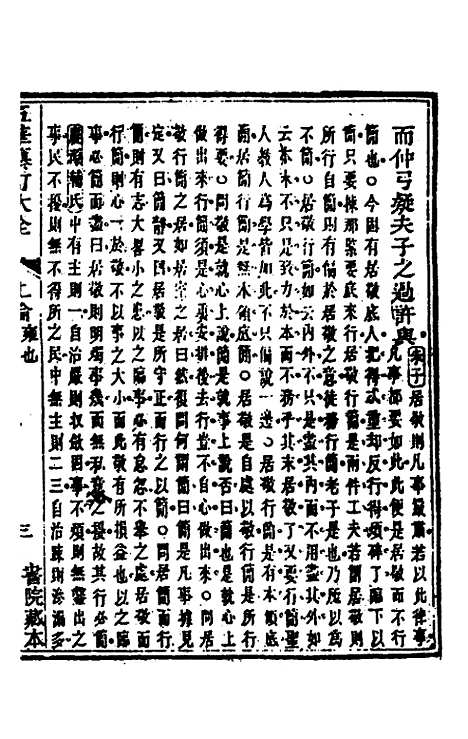 而仲弓疑夫子之過許與 朱子 居敬則凡事嚴肅若以此律事
凡事都要如此此便是居敬而不行
簡也○今固有居敬底人把得忒重却反行得煩碎了臨下以
簡只要揀那緊要底來行居敬行簡是兩件工夫若謂居敬則
所行自簡則有偏於居敬之意徒務行簡老子是也乃所以爲
不簡○居敬行簡如云內外不只是盡其內而不用盡其外如
云本末不只是致力於本而不務乎其末居敬了又要行簡聖
人教人爲學皆如此不只偏說一邊○居敬行簡是有本領底
簡居簡行簡是無本領底簡○居敬是自處以敬行簡是所行
得要○問敬是就心上說簡是就事上說否曰簡也是就心上
做出來行簡須是心裏安排後去行豈不自心做出來○問居
敬行簡之居如居室之居曰然復問何謂簡曰簡是凡事據見
定又曰簡靜又曰居敬是所守正而行之以簡○問居簡而行
簡則有志大畧小之患以之臨事必有怠忽不舉之處居敬而
行簡則心一於敬不以事之大小而此敬有所損益也以之臨
事必簡而盡曰居敬則明燭事幾而無私意之擾故其行必簡
慶源輔氏 中有主則一自治嚴則收斂固事不煩則無鑿出之
事民不擾則無不得所之民中無主則二三自治疎則滲漏多
四書集註大全
上論 雍也
三
書院藏本